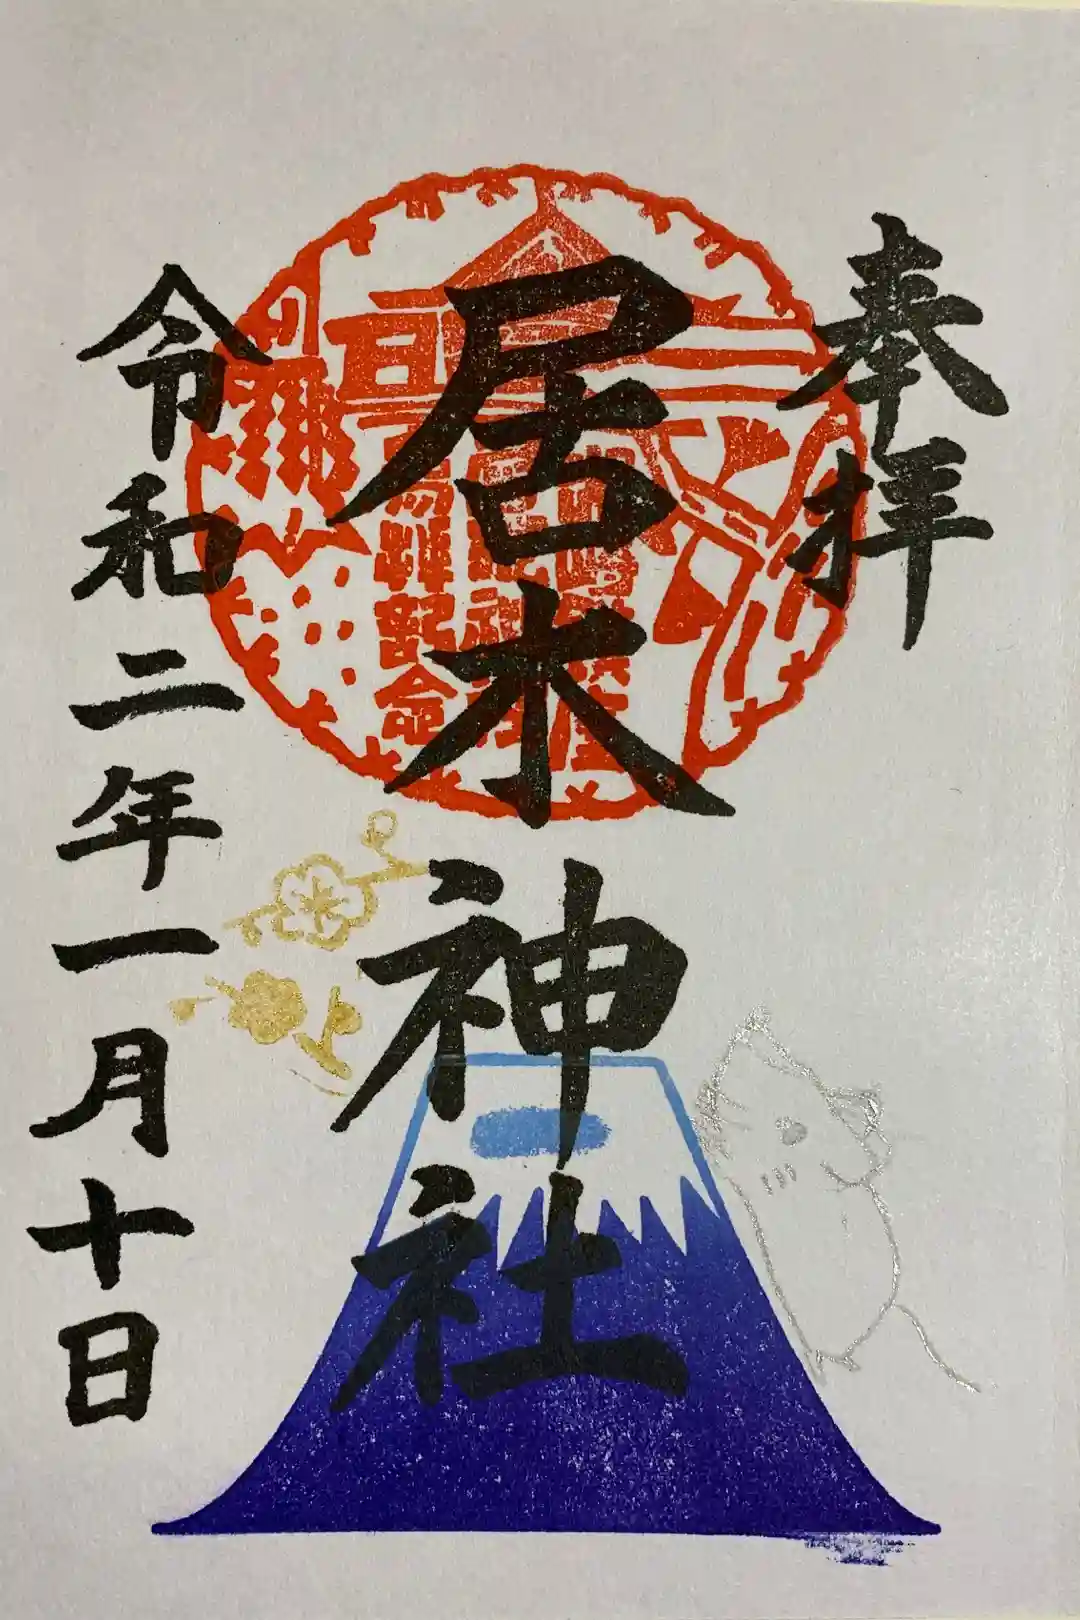 奉拝
居木神社
令和二年一月十日